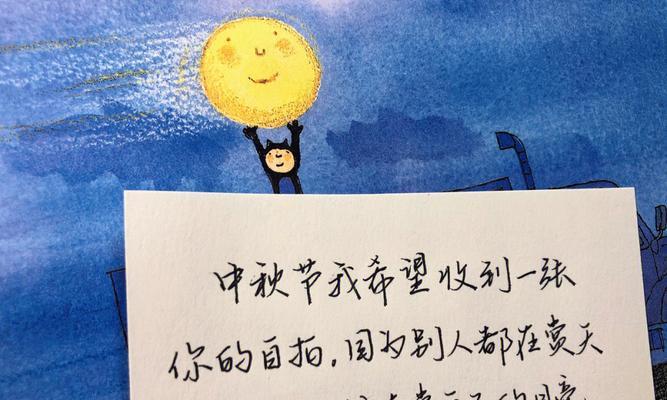 中秋节我希望收到一张
你的自拍，因为别人都在赏天